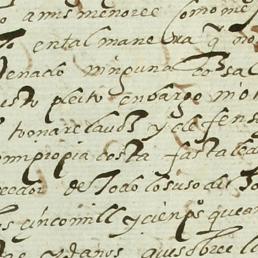 a mis menores como me
to en tal manera q no
denado ninguna cosa
esto pleito enbargo
tomare la uoz y defens
mi propia costa fasta
de todo lo suso di
cinco mill y cien ps que
y daños que sobre